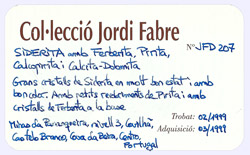 Col·lecció Jordi Fabre
Nº JFD 207
SIDERITA amb Ferberita, Pirita,
Calcopirita i Calcita-Dolomita
Grans cristalls de Siderita en molt bon estat i amb
bon color. Amb petits recobriments de Pirita i amb
cristalls de Ferberita a la base
Trobat: 02/1999
Minas da Panasqueira, nivell 3, Covilhã,
Adquisició: 03/1999
Castelo Branco, Cova da Beira, Centro,
Portugal